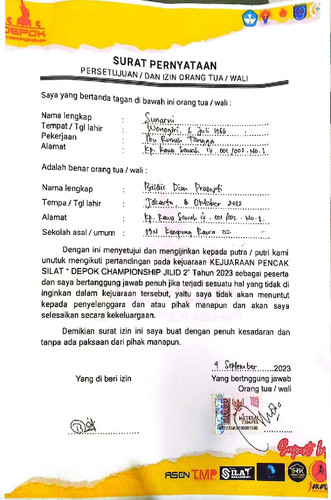 DEPOK
SURAT PERNYATAAN
PERSETUJUAN / DAN IZIN ORANG TUA / WALI
Saya yang bertanda tagan di bawah ini orang tua / wali :
Nama lengkap : Sunarni
Tempat / Tgl lahir : Wonogiri, 6 Juli 1966
Pekerjaan : Ibu Rumah Tangga
Alamat : Kp. Rawa Sawah IV. 001/002. No.1
Adalah benar orang tua / wali :
Nama lengkap : Bilqis Dian
Tempa / Tgl lahir : Jakarta, 8 Oktober 2012
Alamat : Kp. Rawa Sawah IV. 001/002. No.1.
Sekolah asal / umum : SDN Kampung Rawa 02
Dengan ini menyetujui dan mengijinkan kepada putra / putri kami
unutuk mengikuti pertandingan pada kejuaraan KEJUARAAN PENCAK
SILAT " DEPOK CHAMPIONSHIP JILID 2" Tahun 2023 sebagai peserta
dan saya bertanggung jawab penuh jika terjadi sesuatu hal yang tidak di
inginkan dalam kejuaraan tersebut, yaitu saya tidak akan menuntut
kepada penyelenggara dan atau pihak manapun dan akan saya
selesaikan secara kekeluargaan.
Demikian surat izin ini saya buat dengan penuh kesadaran dan
tanpa ada paksaan dari pihak manapun.
4 September 2023
Yang di beri izin
Yang bertnggung jawab
Orang tua / wali
METERAI
TEMPEL
Suport by
TMP
SILAT